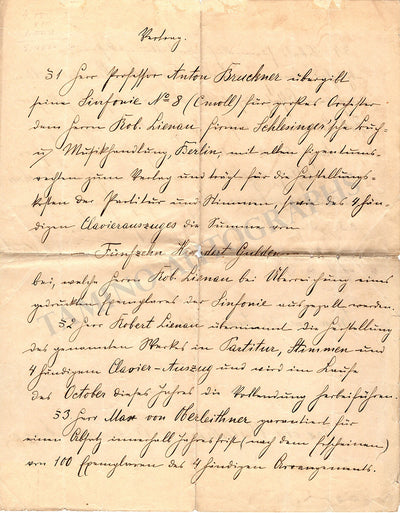 Vertrag.
§1 Herr Professor Anton Bruckner übergibt
seine Sinfonie No 8 (Cmoll) für großes Orchester
dem Herrn Rob. Lienau, Firma Schlesinger'sche Buch-
u. Musikhandlung, Berlin, mit allen Eigentums-
rechten zum Verlag und trägt für die Herstellungs-
kosten der Partitur und Stimmen, sowie des 4 hän-
digen Clavierauszuges die Summe von
Fünfzehn Hundert Gulden
bei, welche Herrn Rob Lienau bei Überreichung eines
gedruckten Exemplares der Sinfonie ausgezalt werden.
§2 Herr Robert Lienau übernimmt die Herstellung
des genannten Werks in Partitur, Stimmen und
4 händigem Clavier-Auszug und wird im Laufe
des October dieses Jahres die Vollendung herbeiführen.
§3 Herr Max von Oberleithner garantiert für
einen Absatz innerhalb Jahresfrist (nach dem Erscheinen)
von 100 Exemplaren des 4 händigen Arrangements.
TAMINO AUTOGRAPHS